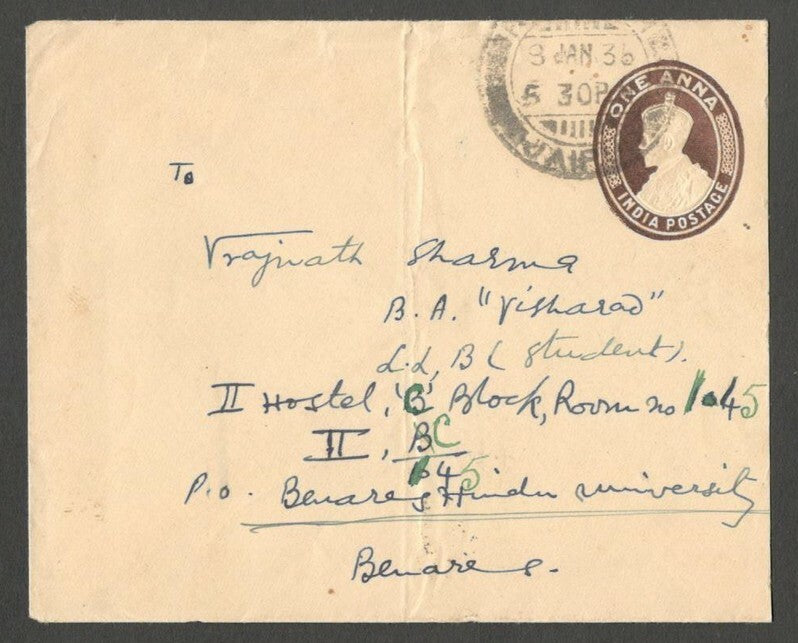 8 JAN 36
5 30P
ONE ANNA
INDIA POSTAGE
To
Vrajnath Sharma
B.A. "Visharad"
L.L, B ( Student).
II Hostel, 'C' Block, Room no 45
II, C
45
P.O. Benares Hindu University
Benares.